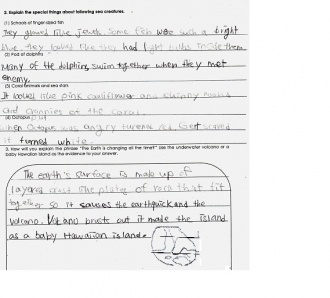 2. Explain the special things about following sea creatures.
(1) Schools of finger-sized fish
They glowed like jewels. Some fish were such a bright
blue they looked like they had light bulbs inside them.
(2) Pod of dolphins
Many of the dolphins swim together when they met
enemy.
(3) Coral animals and sea stars
It looked like pink cauliflower and skinny hands
and of the coral.
(4) Octopus
When Octopus was angry turened red. Get scared
it turned white.
3. How will you explain the phrase "The Earth is changing all the time?" Use the underwater volcano or a
baby Hawaiian Island as the evidence to your answer.
The earth's surface is made up of
layered crust like plates of rock that fit
together so it causes the earthquick and the
volcano. Volcano brusts out it made the island
as a baby Hawaiian island.